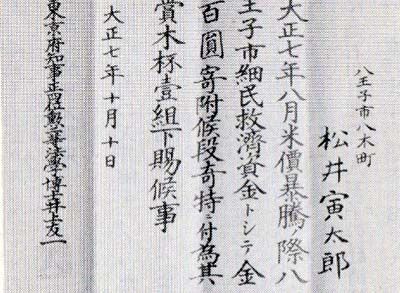 八王子市八木町
松井寅太郎
大正七年八月米價暴騰ノ際八
王子市細民救濟資金トシテ金
百圓寄附候段奇特ニ付為其
賞木杯壹組下賜候事
大正七年十月十日
東京府知事正四位勲二等法學博士井上友一